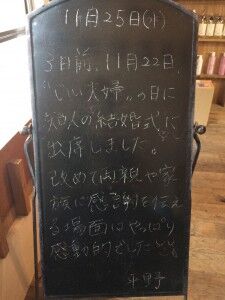 11月25日(水)
3日前、11月22日、
"いい夫婦"の日に
知人の結婚式に
出席しました。
改めて両親や家
族に感謝を伝え
る場面にやっぱり
感動的でした
平野